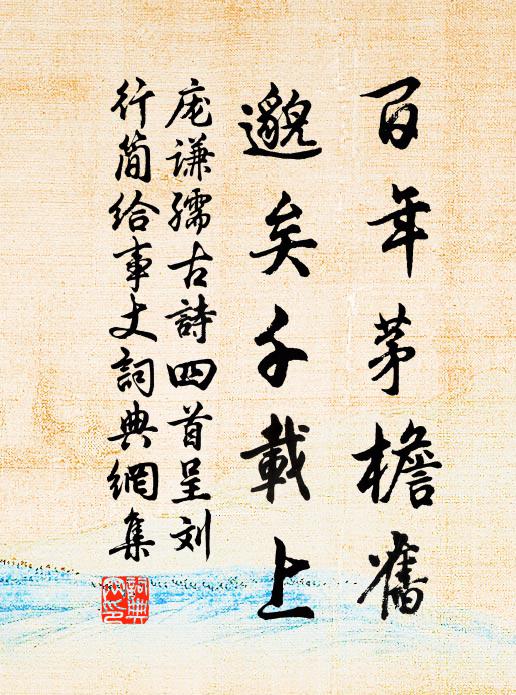 百年茅檐舊
邈矣千載上
庞谦孺古詩四首呈刘
行简给事丈詞典網集